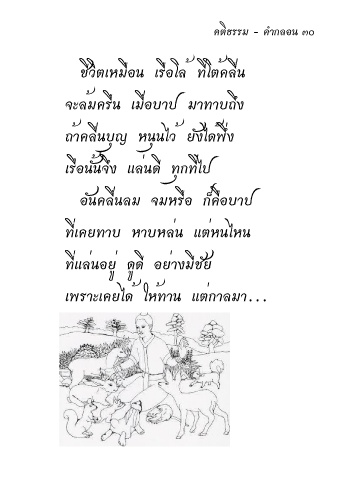 คติธรรม - คำกลอน ๓๐
ชีวิตเหมือน เรือโล้ ที่โต้คลื่น
จะล้มครืน เมื่อบาป มาทาบถึง
ถ้าคลื่นบุญ หนุนไว้ ยังได้พึ่ง
เรือนั้นจึง แล่นดี ทุกที่ไป
อันคลื่นลม จมหรือ ก็คือบาป
ที่เคยทาบ หาบหล่น แต่หนไหน
ที่แล่นอยู่ ดูดี อย่างมีชัย
เพราะเคยได้ ให้ทาน แต่กาลมา...